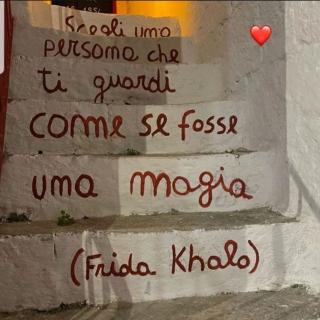 Scegli una
persona che
ti guardi
come se fosse
una magia
(Frida Khalo)